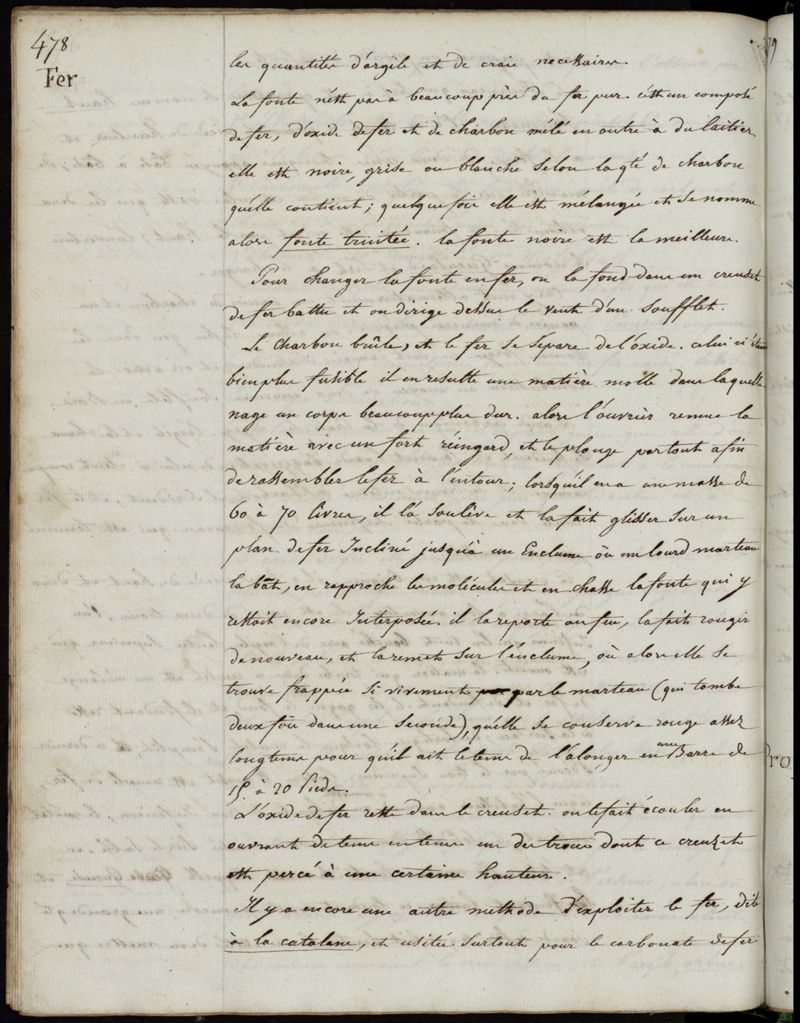 478
Fer
les quantités d'argile et de craie necessaires.
La fonte n'est pas à beaucoup près du fer pur. c'est un composé
de fer, d'oxide de fer et de charbon mêlé en outre à du laitier
elle est noire, grise ou blanche selon la qté de charbon
qu'elle contient; quelque fois elle est mélangée et se nomme
alors fonte truitée. la fonte noire est la meilleure.
Pour changer la fonte en fer, on la fond dans un creuset
de fer battu et on dirige dessus le vent d'un soufflet.
Le charbon brûle, et le fer se sépare de l'oxide. celui ci étant
bien plus fusible il en resulte une matière molle dans laquelle
nage un corps beaucoup plus dur. alors l'ouvrièr remue la
matière avec un fort réingard, et le plonge partout afin
de rassembler le fer à l'entour; lorsqu'il en a une masse de
60 à 70 livres, il la soulève et la fait glisser sur un
plan de fer Incliné jusqu'à un Enclume où un lourd marteau
la bât, en rapproche les molécules et en chasse la fonte qui y
restoit encore Interposée. il la reporte au feu, la fait rougir
de nouveau, et la remet sur l'enclume, où alors elle se
trouve frappée si vivement par le marteau (qui tombe
deux fois dans une seconde), qu'elle se conserve rouge assez
longtems pour qu'il ait le tems de l'alonger en une Barre de
15 à 20 Pieds.
L'oxide de fer reste dans le creuset. on le fait écouler en
ouvrant de tems en tems un des trous dont ce creuzet
est percé à une certaine hauteur.
Il y a encore une autre methode d'exploiter le fer, dite
à la catalane, et usitée surtout pour le carbonate de fer